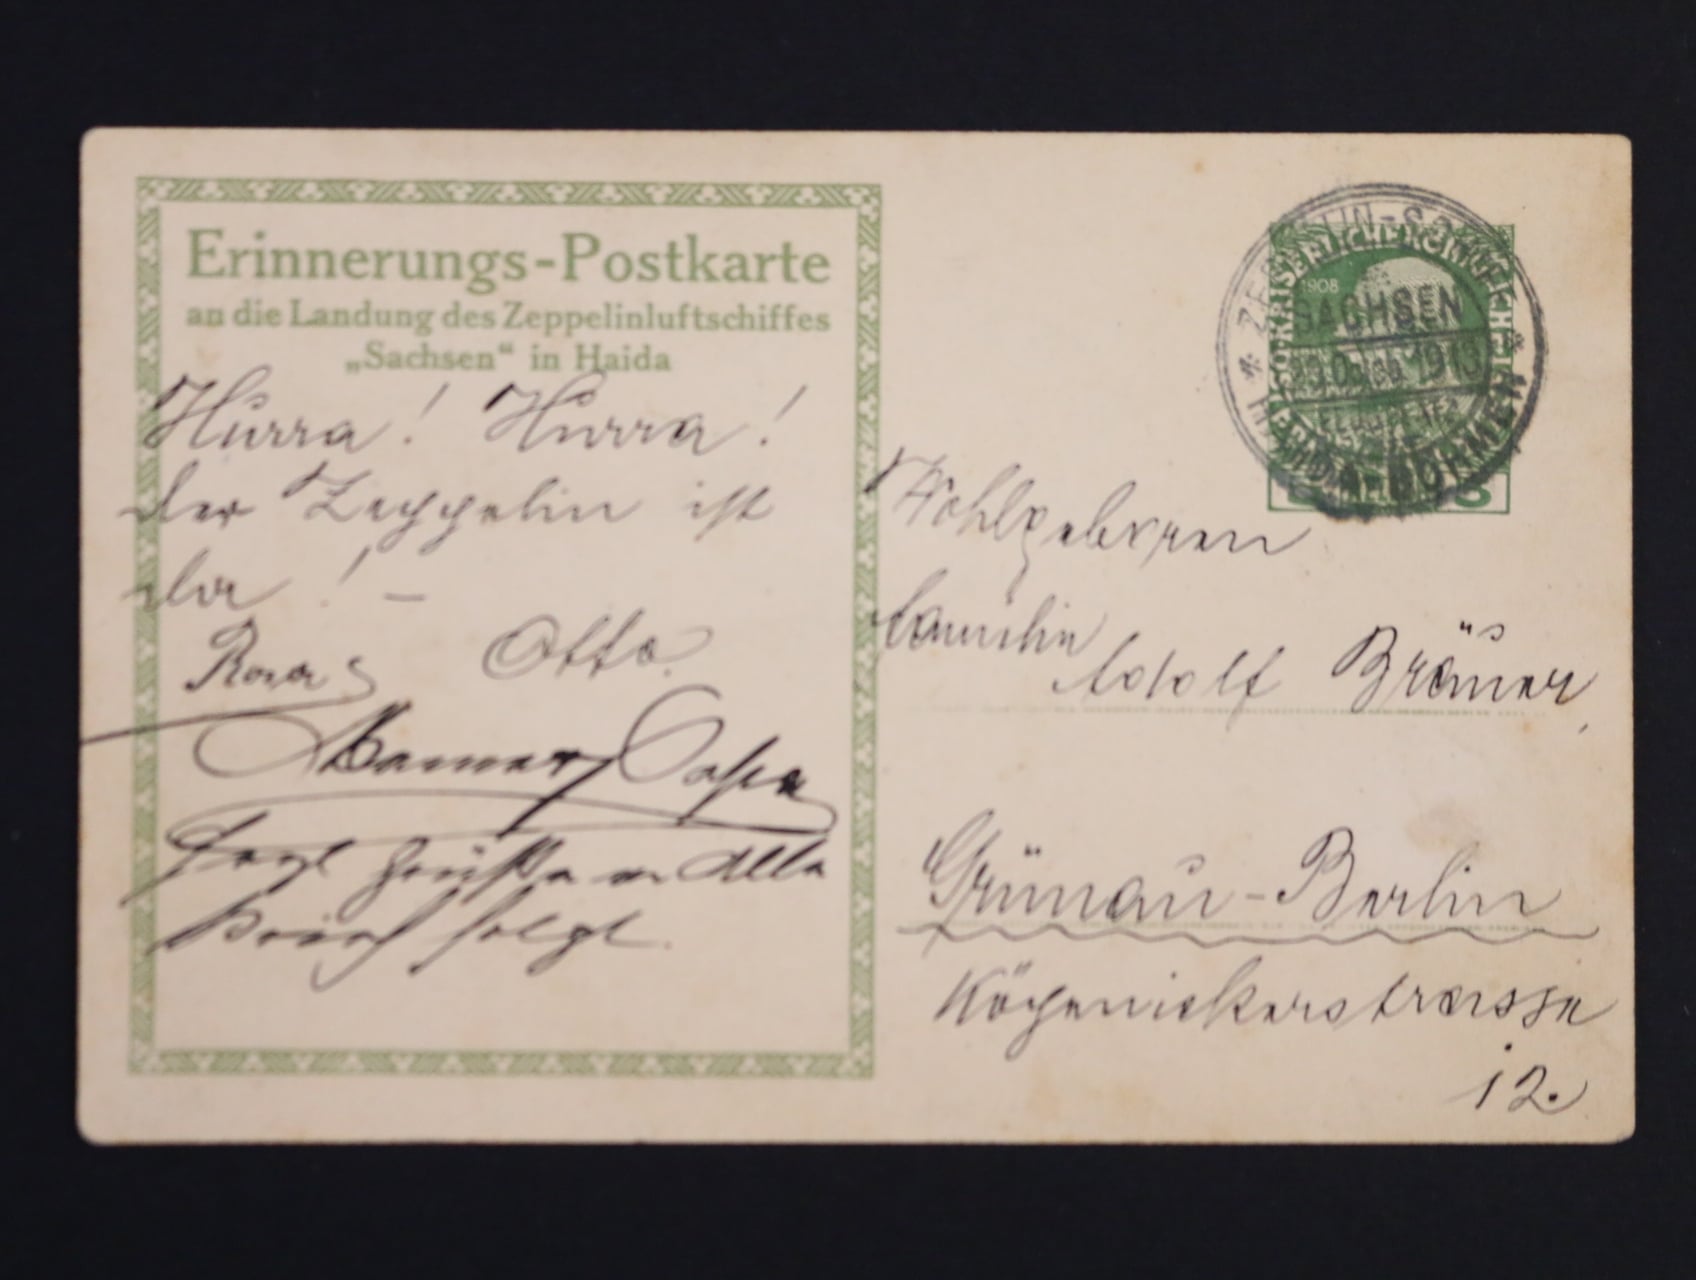 Erinnerungs-Postkarte
an die Landung des Zeppelinluftschiffes
„Sachsen“ in Haida
Hurra! Hurra!
der Zeppelin ist
da! –
Rosa Otto.
Mama Papa
Grüße an Alle
Brief folgt.
1908
SACHSEN
1913
HAIDA-BÖHMEN
Wohlgeboren
Familie
Adolf Bräuer,
Grünau-Berlin
Köpenickerstrasse
12.